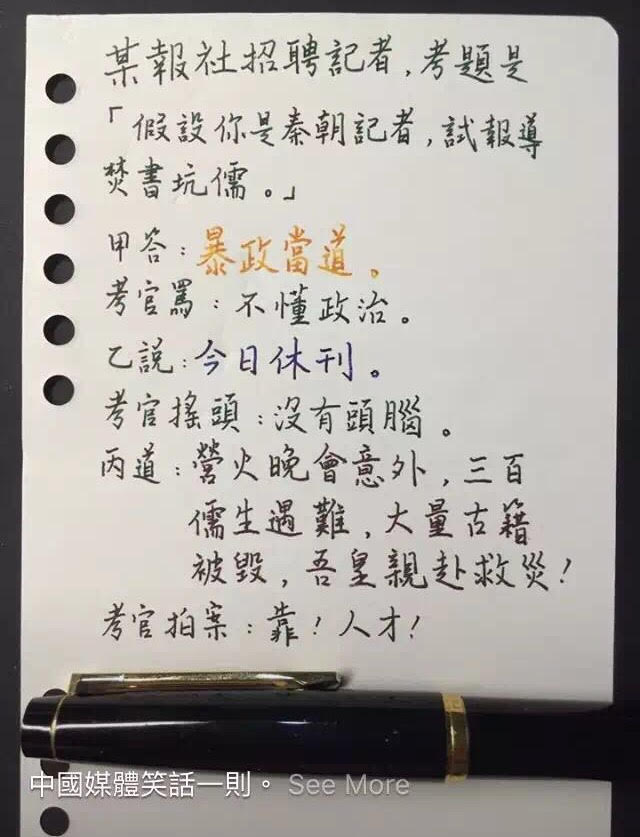 某報社招聘記者,考題是
「假設你是秦朝記者,試報導
焚書坑儒。」
甲答:暴政當道。
考官罵:不懂政治。
乙說:今日休刊。
考官搖頭:沒有頭腦。
丙道:營火晚會意外,三百
儒生遇難,大量古籍
被毀,吾皇親赴救災!
考官拍案:靠!人才!
中國媒體笑話一則。 See More